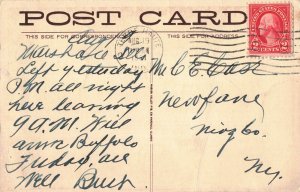 POST CARD
THIS SIDE FOR CORRESPONDENCE
THIS SIDE FOR ADDRESS.
Marshall
Left yesterday
P.M. all night
here leaving
9 A.M. Will
arrive Buffalo
Friday, all
Well Bush
Mr C E Case
Newfane
Niag Co.
Ny.
2 CENTS 2